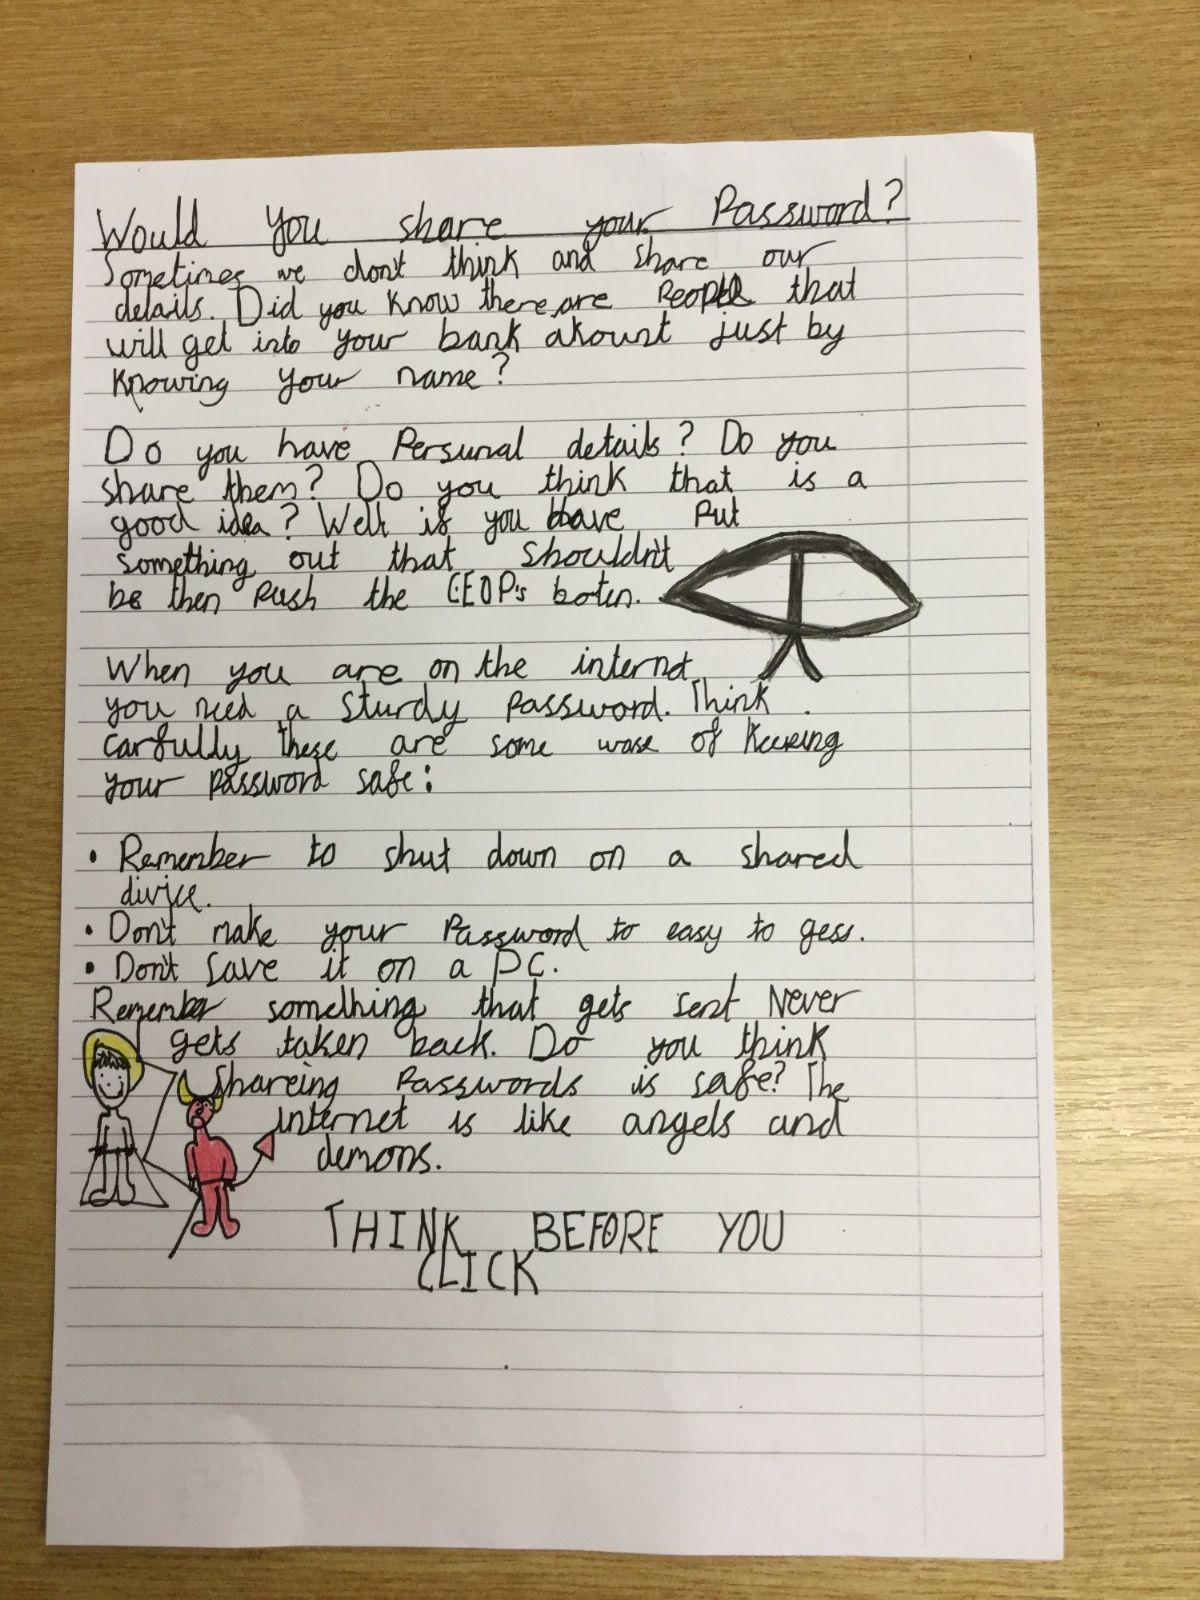 Would you share your Password?
Sometimes we don't think and share our
details. Did you know there are People that
will get into your bank akount just by
knowing your name?
Do you have Persunal details? Do you
share them? Do you think that is a
good idea? Well if you have Put
something out that shouldn't
be then Push the CEOP's boten.
When you are on the internet
you need a sturdy Password. Think
carfully these are some wase of Keeping
your password safe:
• Remember to shut down on a shared
divice.
• Don't make your Password to easy to gess.
• Don't save it on a PC.
Remember something that gets sent Never
gets taken back. Do you think
Shareing Passwords is safe? The
internet is like angels and
demons.
THINK BEFORE YOU
CLICK